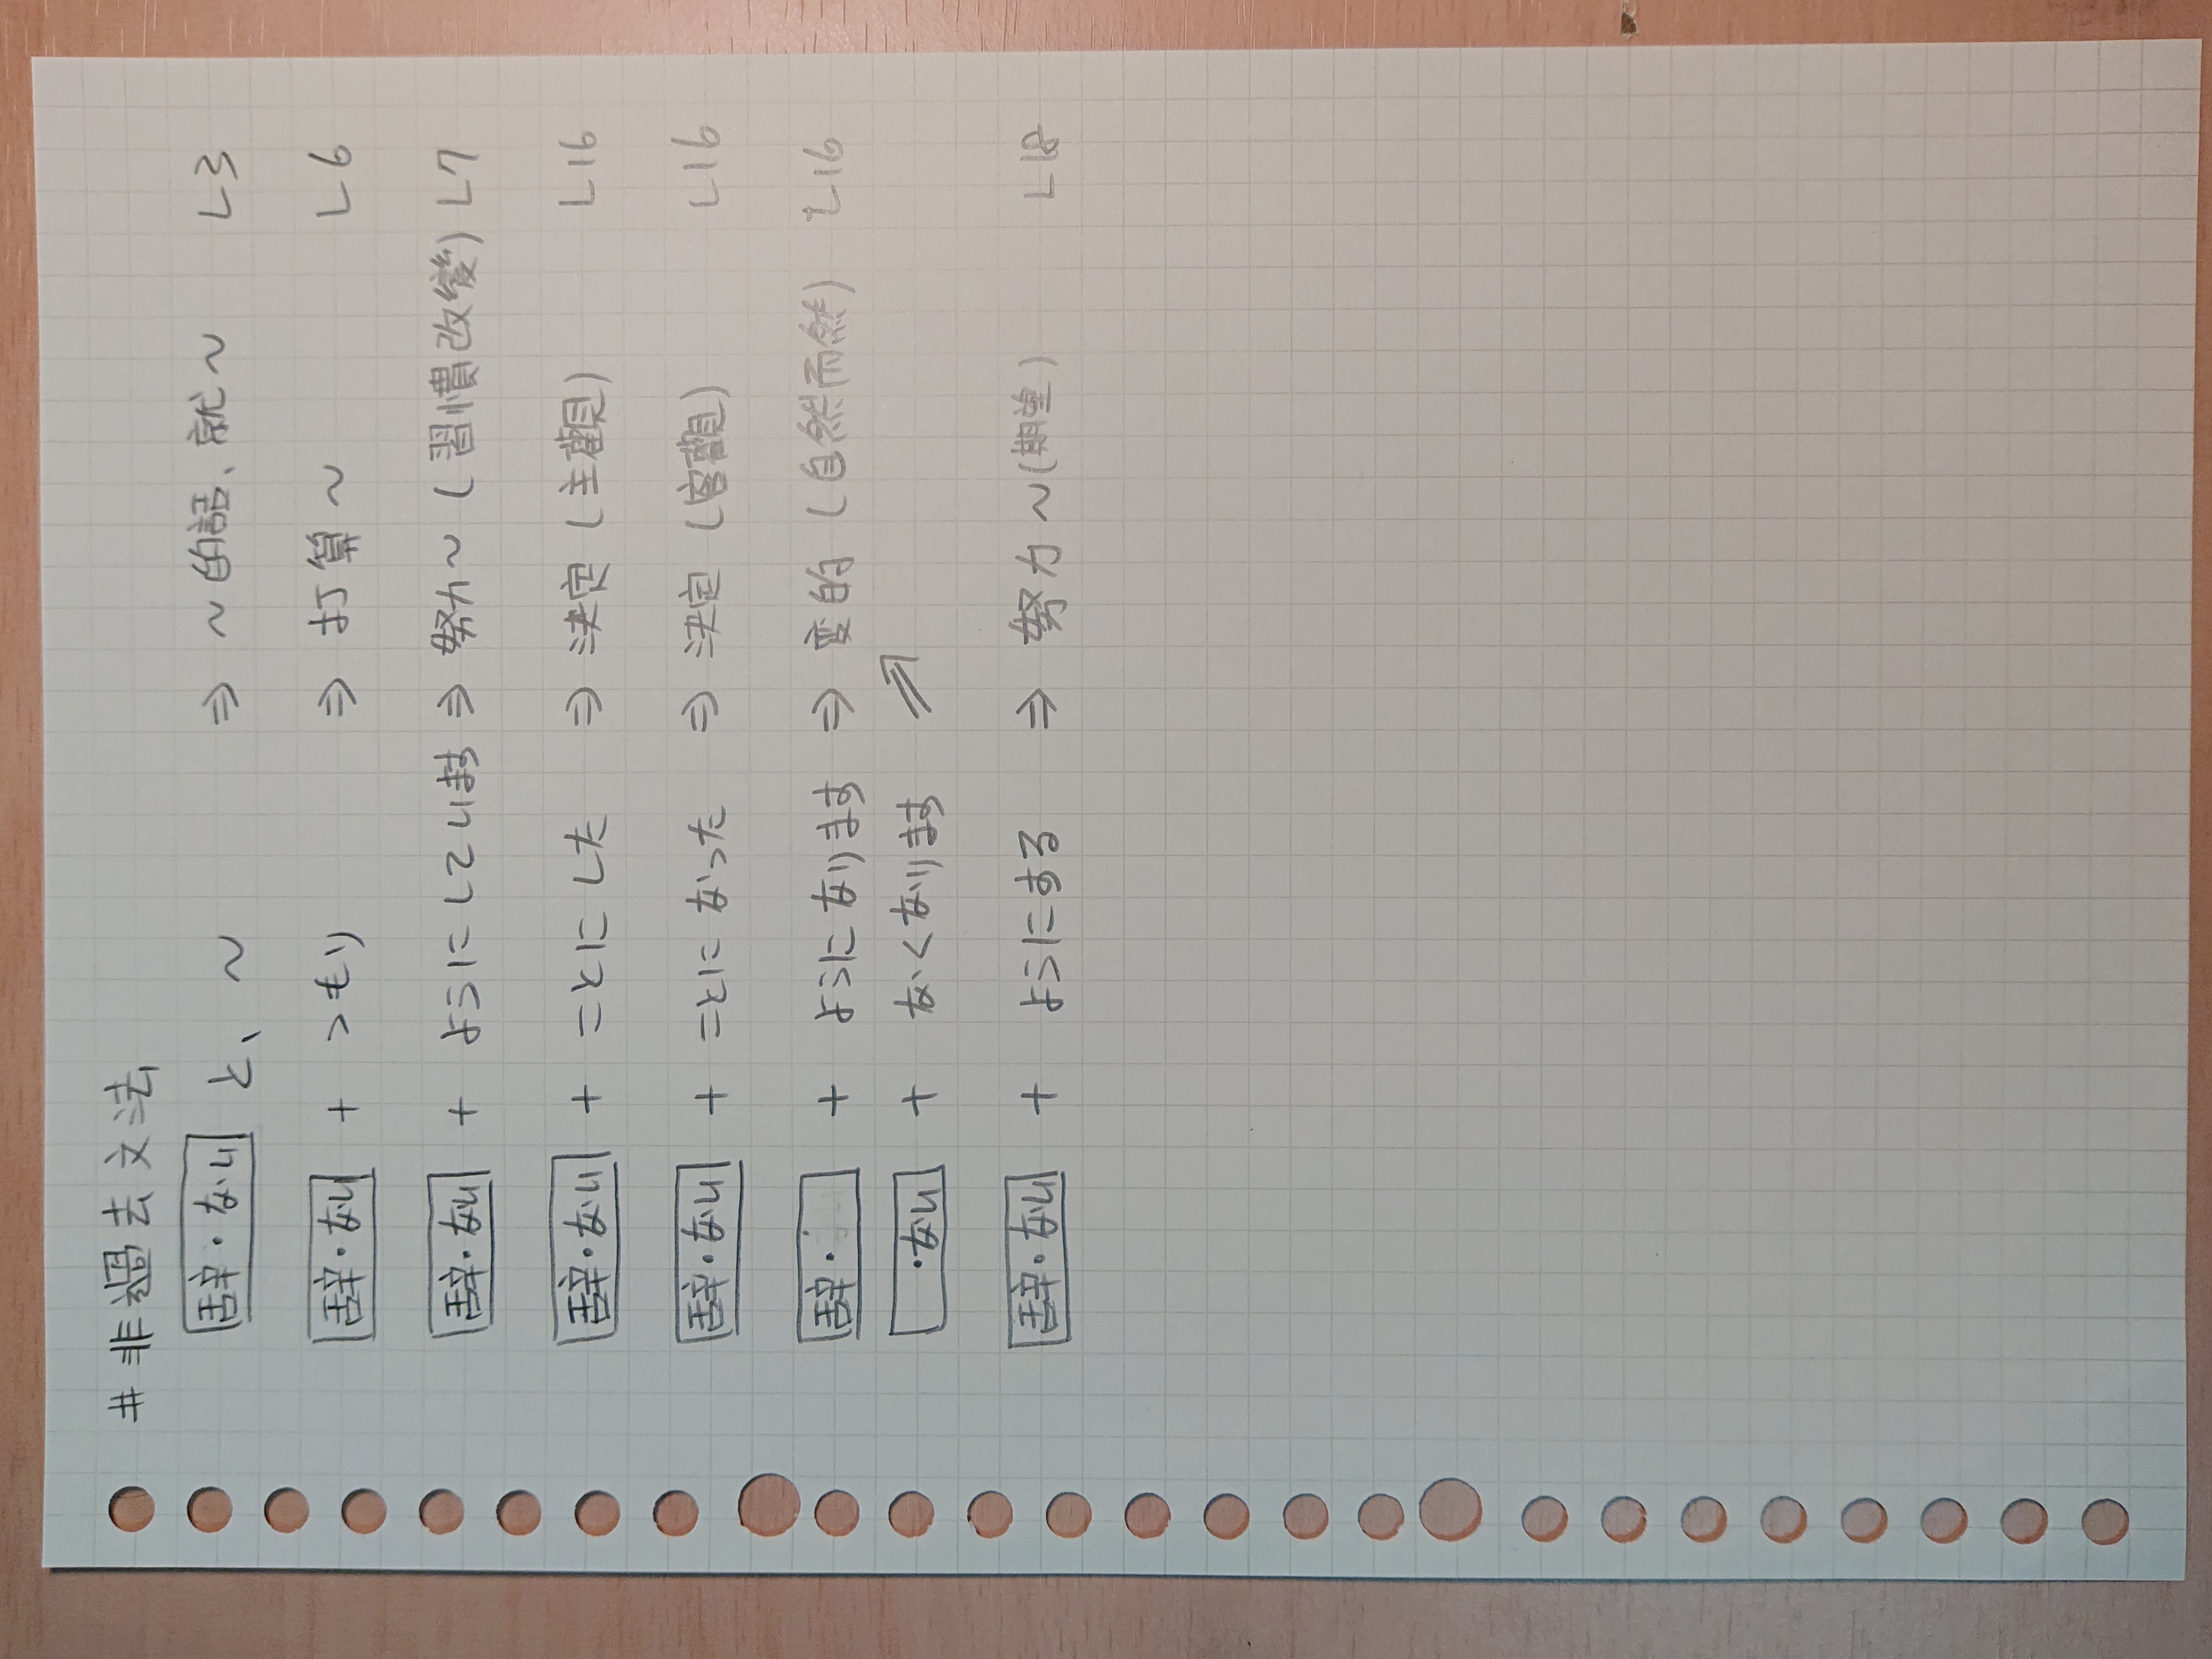 # 非過去文法
辞・ない と、~ ⇒ ~的話、就~ L3
辞・ない + つもり ⇒ 打算~ L6
辞・ない + ようにしています ⇒ 努力~ (習慣改變) L7
辞・ない + ことにした ⇒ 決定 (主觀) L16
辞・ない + ことになった ⇒ 決定 (客觀) L16
辞・ + ようになります ⇒ 変的 (自然而然) L16
・ない + なくなります ⇒
辞・ない + ようにする ⇒ 努力~(期望) L18